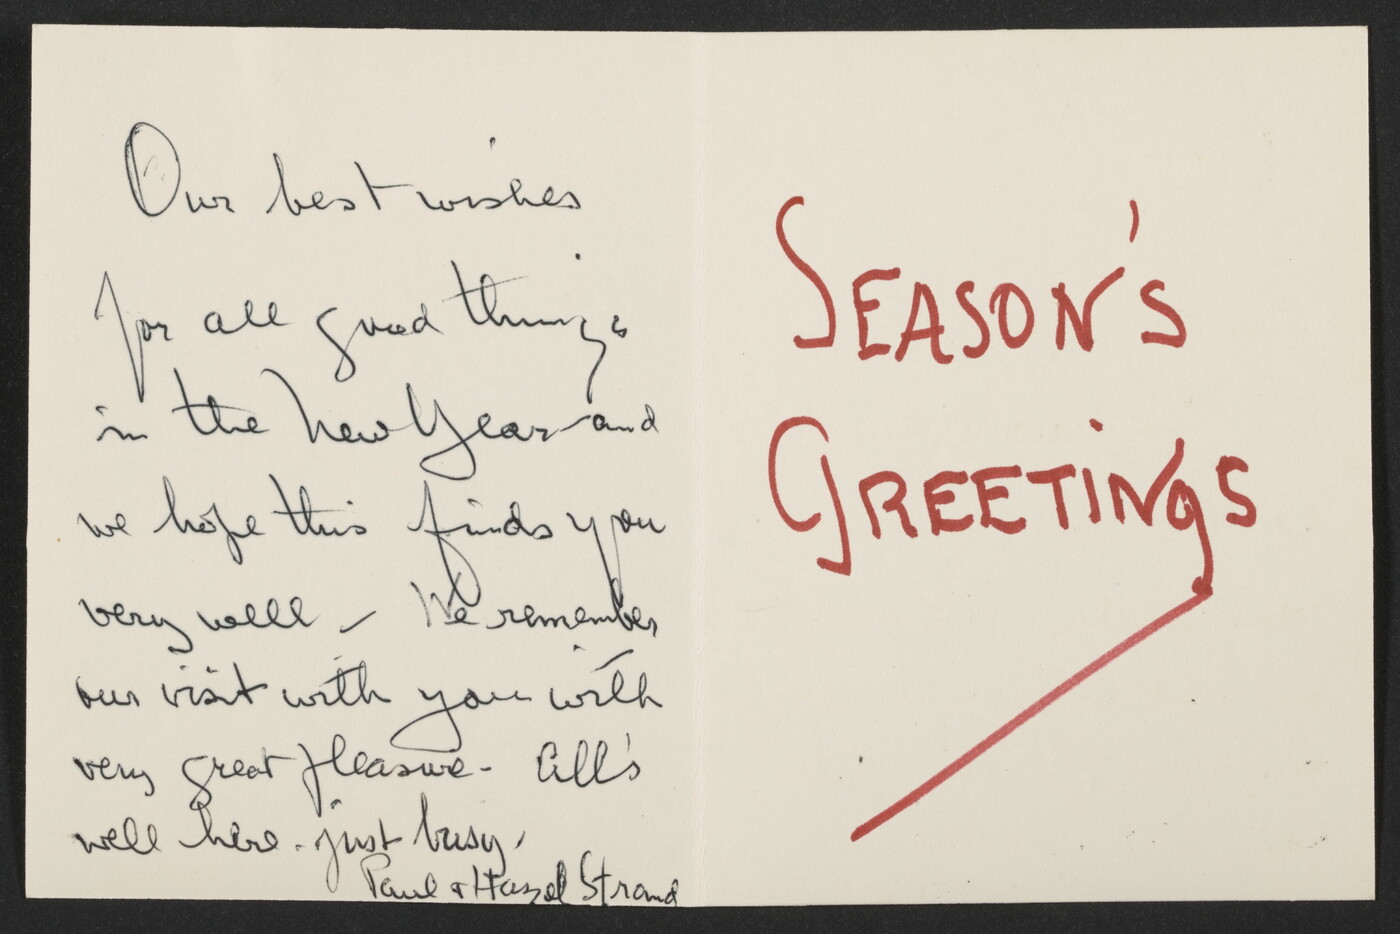 Our best wishes
for all good things
in the New Year and
we hope this finds you
very well - We remember
our visit with you with
very great pleasure - All's
well here - just busy.
Paul & Hazel Strand
SEASON'S
GREETINGS